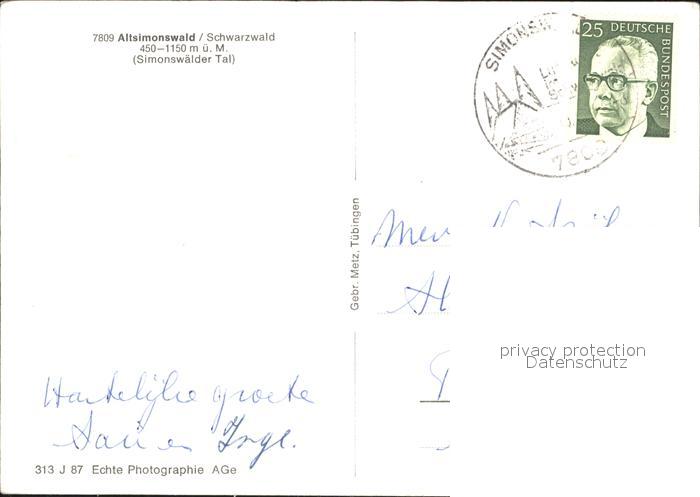 7809 Altsimonswald / Schwarzwald
450–1150 m ü. M.
(Simonswälder Tal)
25 DEUTSCHE
BUNDESPOST
SIMONSW
7809
Gebr. Metz, Tübingen
privacy protection
Datenschutz
Hartelijke groete
Inge.
313 J 87 Echte Photographie AGe